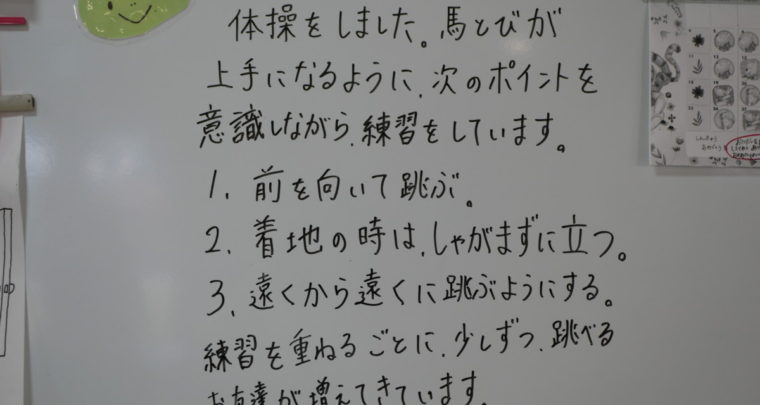 体操をしました。馬とびが
上手になるように、次のポイントを
意識しながら、練習をしています。
1、前を向いて跳ぶ。
2、着地の時は、しゃがまずに立つ。
3、遠くから遠くに跳ぶようにする。
練習を重ねるごとに、少しずつ、跳べる
お友達が増えてきています。